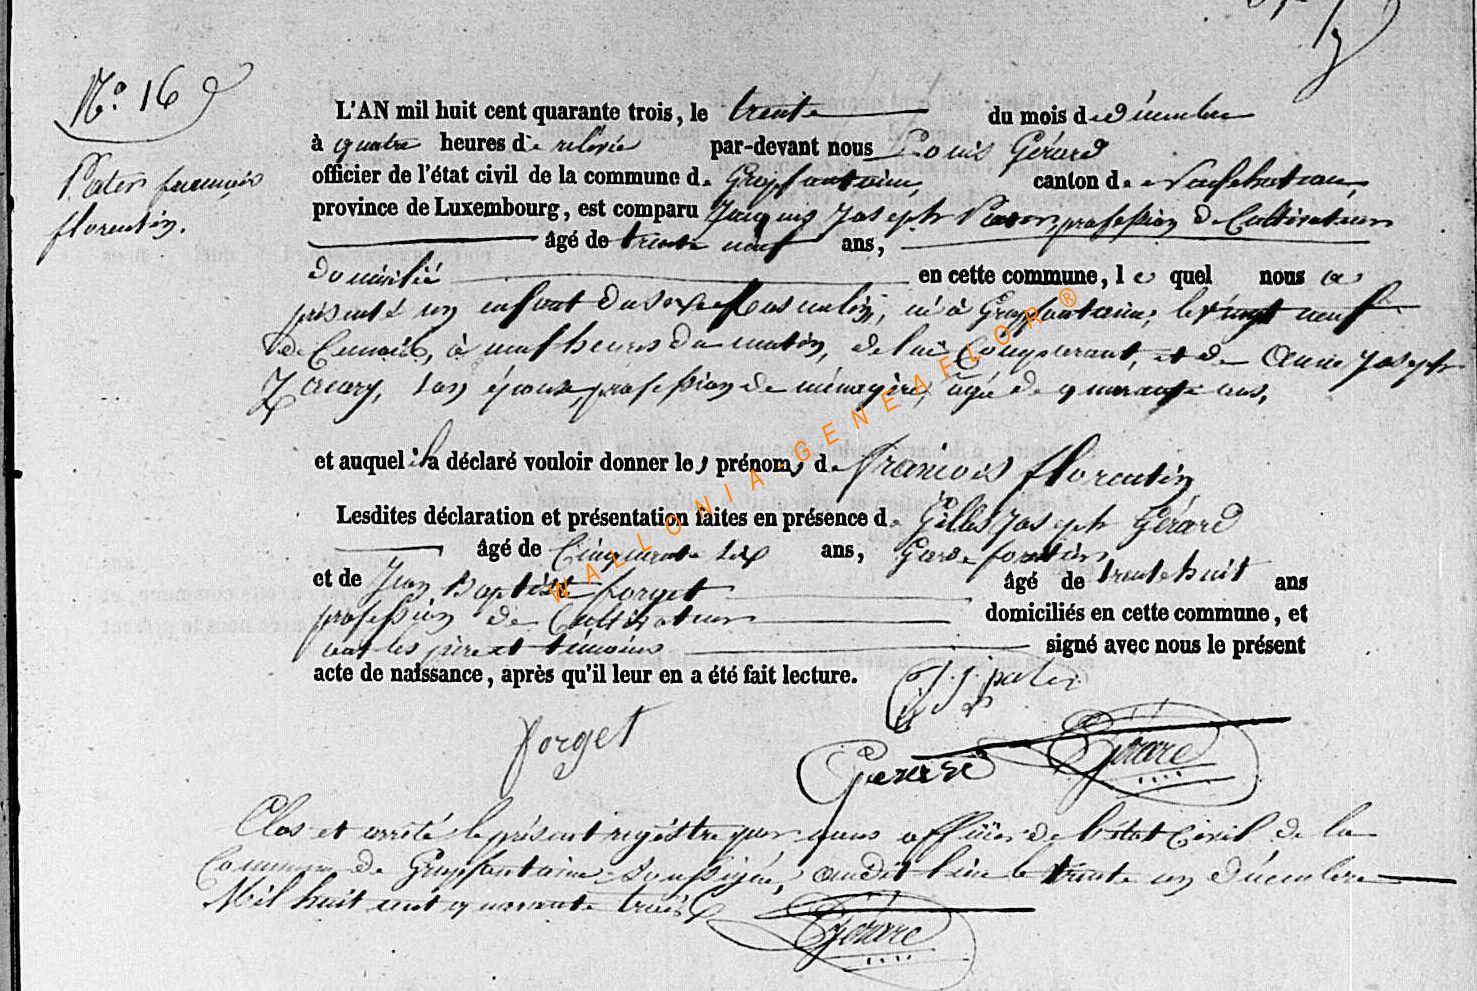 N.° 16
Pater françois
florentin.
L'AN mil huit cent quarante trois, le trente du mois de décembre
à quatre heures de relevée par-devant nous Louis Gérard
officier de l'état civil de la commune de Grapfontaine, canton de Neufchateau,
province de Luxembourg, est comparu Jacques Joseph Pater, profession de Cultivateur
âgé de trente neuf ans,
domicilié en cette commune, le quel nous a
présenté un enfant du sexe masculin, né à Grapfontaine, le vingt neuf
de Ce mois, à neuf heures du matin, de lui Comparant, et de Anne Joseph
son épouse, profession de ménagère, âgée de quarante ans,
et auquel il a déclaré vouloir donner les prénoms de françois florentin
Lesdites déclaration et présentation faites en présence de Gilles Joseph Gérard
âgé de Cinquante six ans, Garde forestier
et de Jean Baptiste forget âgé de trente huit ans
profession de Cultivateur domiciliés en cette commune, et
ont les père et témoins signé avec nous le présent
acte de naissance, après qu'il leur en a été fait lecture.
J. J. pater
forget
Gerard Gérard
Clos et arrêté le présent régistre par nous officier de l'état Civil de la
Commune de Grapfontaine Soussigné, audit lieu le trente un décembre
Mil huit cent quarante trois
Gérard
WALLONIA-GENEAFLOR®